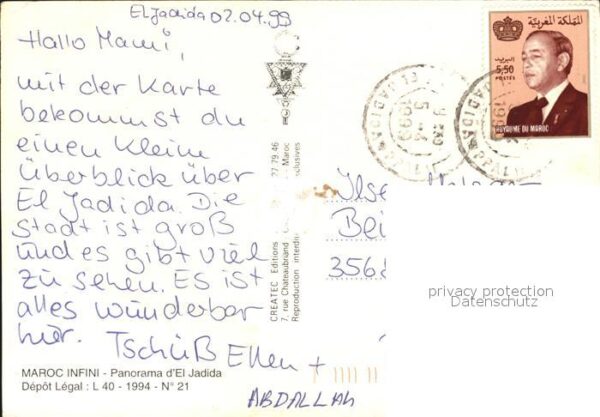 El Jadida 02.04.99
Hallo Mami,
mit der Karte
bekommst du
einen kleinen
Überblick über
El Jadida. Die
Stadt ist groß
und es gibt viel
zu sehen. Es ist
alles wunderbar
hier. Tschüß Ellen +
ABDALLAH
MAROC INFINI - Panorama d'El Jadida
Dépôt Légal : L 40 - 1994 - N° 21
CREATEC Editions
27.79.46
7, rue Chateaubriand
Maroc
Reproduction interdite
exclusives
المملكة المغربية
البريد
5,50
POSTES
ROYAUME DU MAROC
EL JADIDA
1999
Ilse
Bei
3568
privacy protection
Datenschutz